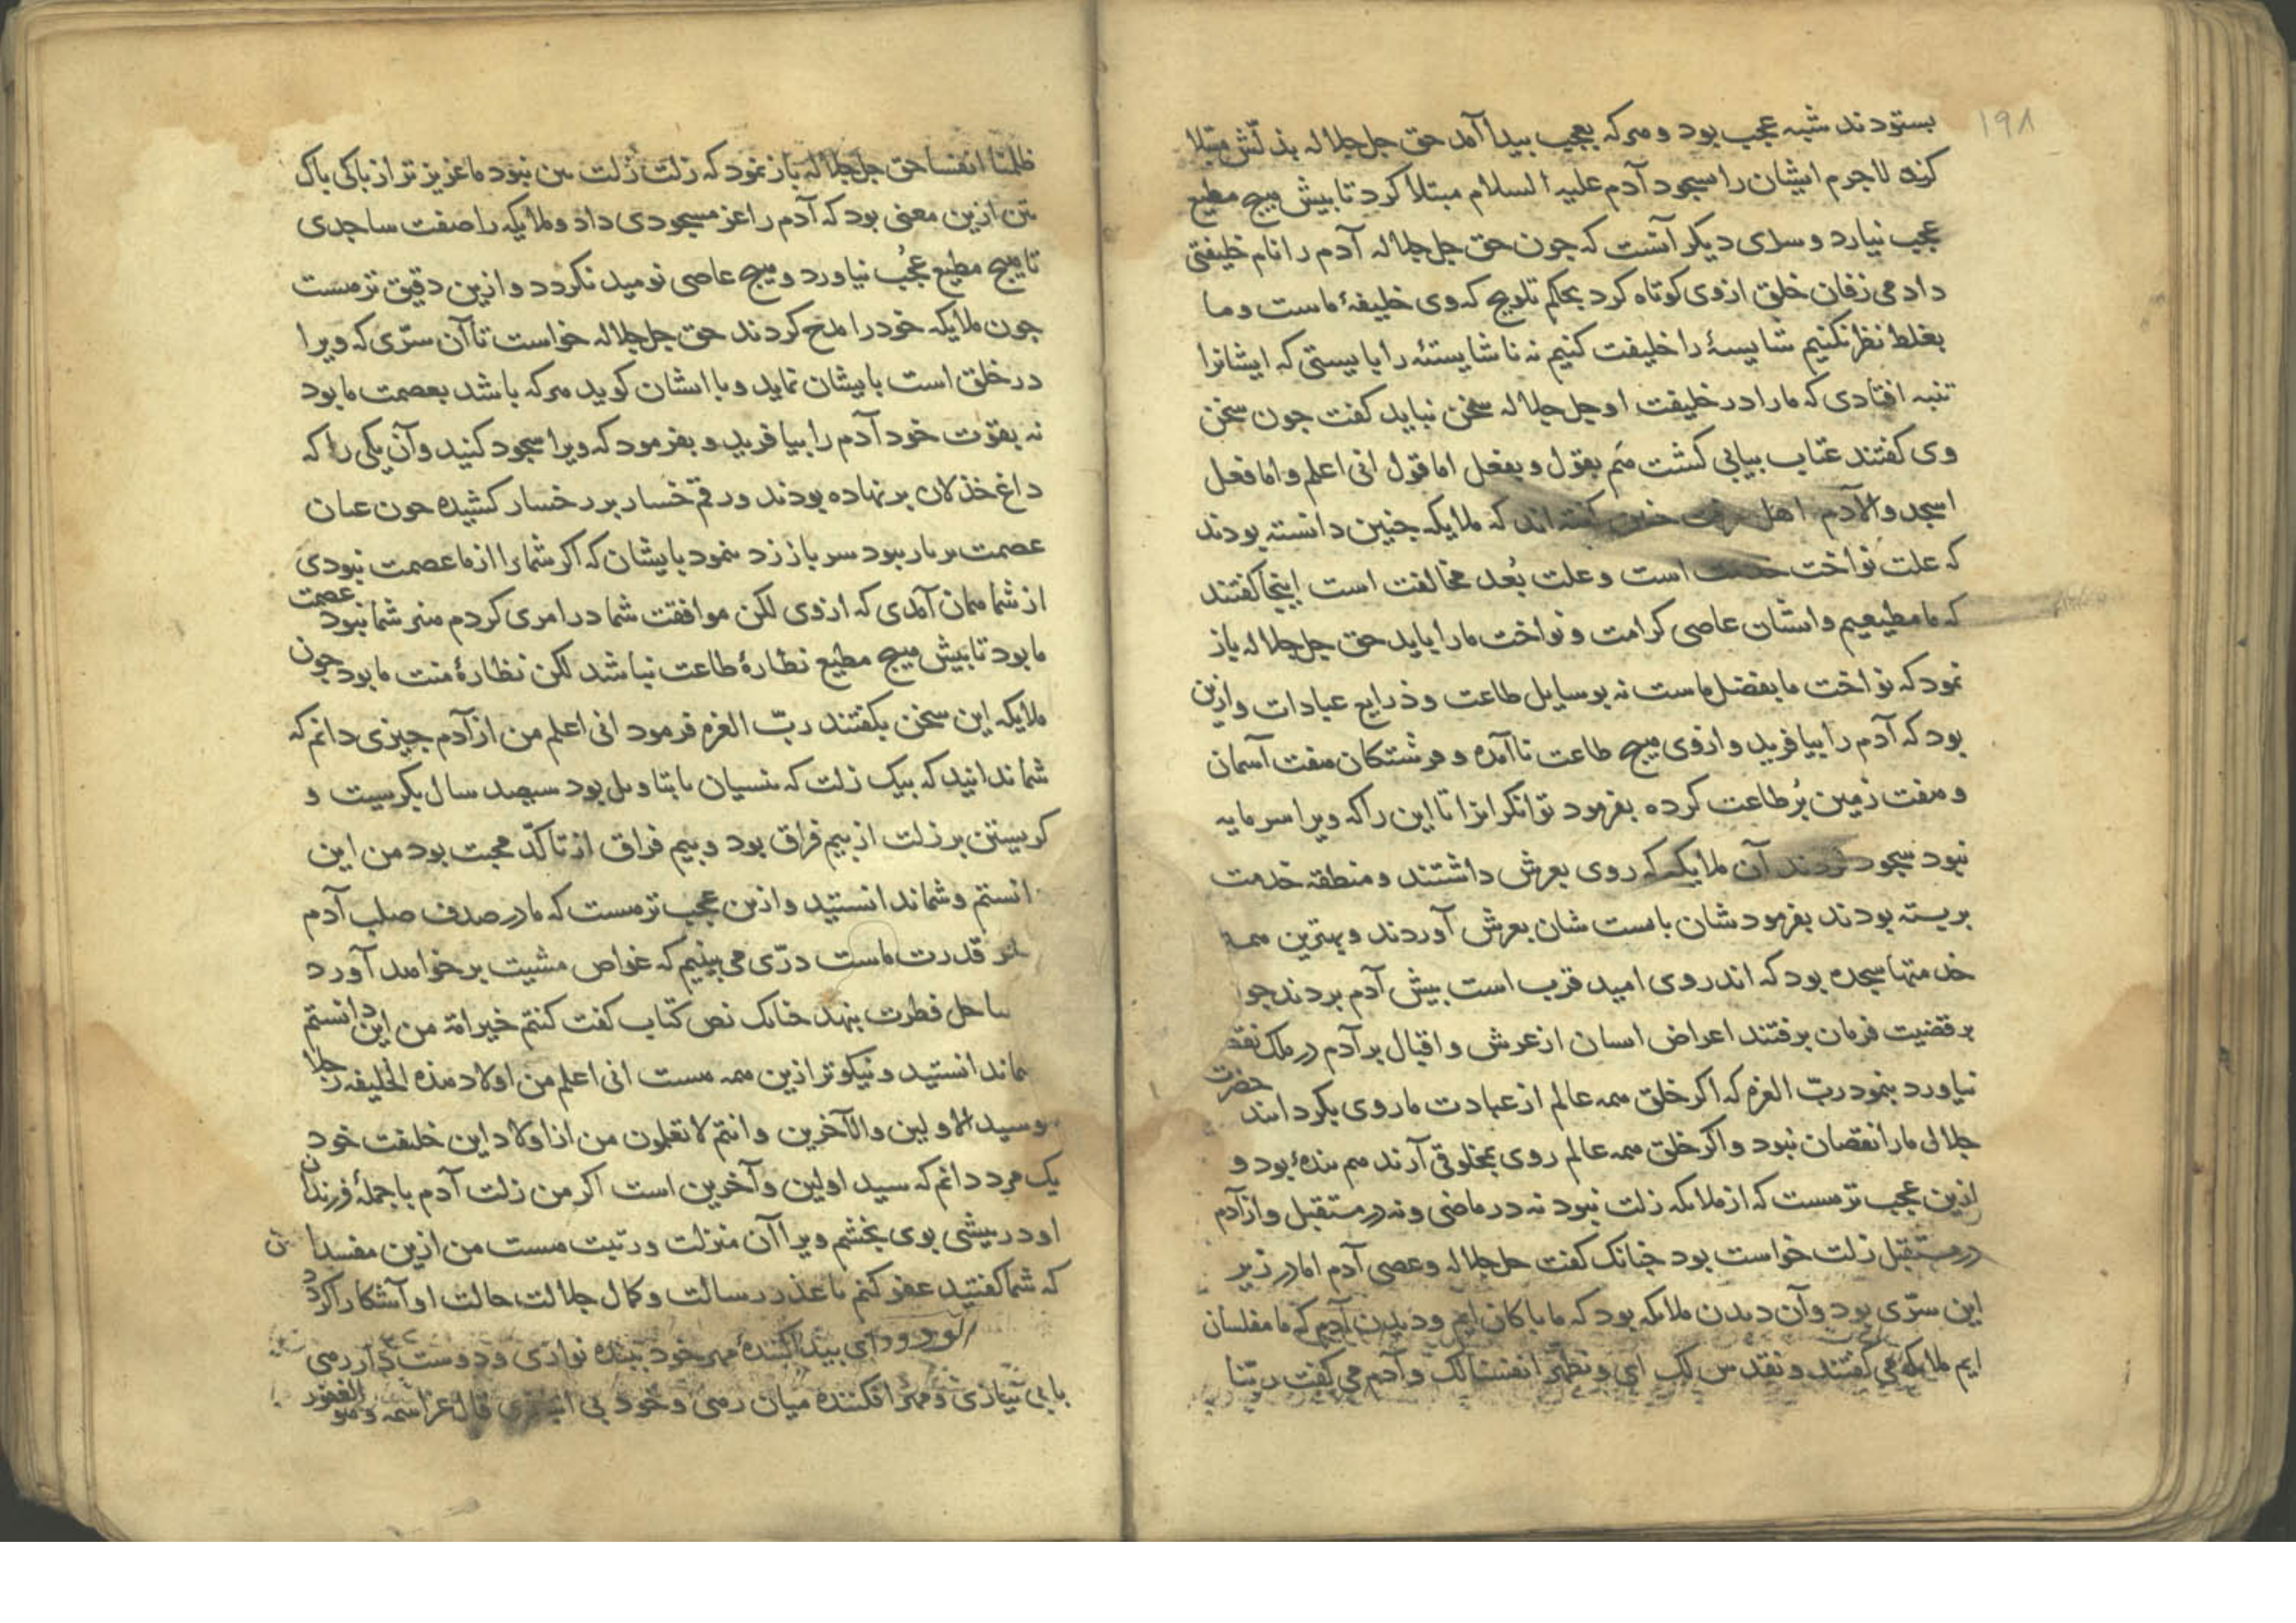 ۱۹۸
بستودند شبه عجب بود و هرکه بعجب بیدا آمد حق جل جلاله بذلّش مبتلا
کند لاجرم ایشان را بسجود آدم علیه السلام مبتلا کرد تا بیش هیچ مطیع
عجب نیارد و سری دیکر آنست که جون حق جل جلاله آدم را نام خلیفتی
داد می زفان خلق از وی کوتاه کرد بحکم تلویح که وی خلیفهٔ ماست و ما
بغلط نظر نکنیم شایستهٔ را خلیفت کنیم نه ناشایستهٔ را بایستی که ایشانرا
تنبه افتادی که ما را در خلیفت او جل جلاله سخن نباید کفت جون سخن
وی کفتند عتاب بیابی کشت هم بقول و بفعل اما قول انی اعلم و اما فعل
اسجدوا لآدم اهل کفته اند که ملایکه جنین دانسته بودند
که علت نواخت خدمت است و علت بُعد مخالفت است اینجا کفتند
که ما مطیعیم و ایشان عاصی کرامت و نواخت ما را باید حق جل جلاله باز
نمود که نواخت ما بفضل ماست نه بوسایل طاعت و ذرایع عبادات و ازین
بود که آدم را بیافرید و از وی هیچ طاعت ناآمده و فرشتکان هفت آسمان
و هفت زمین بُر طاعت کرده بفرمود توانکرانرا تا این را که ویرا سرمایه
نبود سجود کردند آن ملایکه که روی بعرش داشتند و منطقه خدمت
بربسته بودند بفرمودشان بامست شان بعرش آوردند و بهترین همه
خدمتها سجده بود که اندروی امید قرب است بیش آدم بردند جو
بر قضیت فرمان برفتند اعراض ایشان از عرش و اقبال بر آدم در ملک نقص
نیاورد بنمود ربّ العزه که اکر خلق همه عالم از عبادت ما روی بکردانند حضرت
جلالی ما را نقصان نبود و اکر خلق همه عالم روی بمخلوقی آرند هم بندهٔ بود و
ازین عجب تر هست که از ملایکه زلت نبود نه در ماضی و نه در مستقبل و از آدم
در مستقبل زلت خواست بود جنانک کفت جل جلاله و عصی آدم اما در زیر
این سرّی بود و آن دیدن ملایکه بود که ما باکان ایم و دیدن آدم که ما مفلسان
ایم ملایکه می کفتند و نقدس لک ای و نطهر انفسنا لک و آدم می کفت ربّنا
ظلمنا انفسنا حق جل جلاله باز نمود که زلت زُلت بین نبود ما عزیزتر از باکی باک
بین ازین معنی بود که آدم را عز مسجودی داد و ملایکه را صفت ساجدی
تا هیچ مطیع عُجُب نیاورد و هیچ عاصی نومید نکردد و ازین دقیق تر هست
جون ملایکه خود را مدح کردند حق جل جلاله خواست تا آن سرّی که ویرا
در خلق است بایشان نماید و با ایشان کوید هرکه باشد بعصمت ما بود
نه بقوّت خود آدم را بیافرید و بفرمود که ویرا سجود کنید و آن یکی را که
داغ خذلان بر نهاده بودند و رقم خسار بر رخسار کشیده جون عنان
عصمت بر بار نبود سر باز زد بنمود بایشان که اکر شما را از ما عصمت نبودی
از شما همان آمدی که از وی لکن موافقت شما در امری کردم هنر شما نبود عصمت
ما بود تا بیش هیچ مطیع نظارهٔ طاعت نباشد لکن نظارهٔ منت ما بود جون
ملایکه این سخن بکفتند ربّ العزه فرمود انی اعلم من از آدم جیزی دانم که
شما ندانید که بیک زلت که بنسیان یا بتاویل بود سیصد سال بکریست و
کریستن بر زلت از بیم فراق بود و بیم فراق از تاکّد محبت بود من این
دانستم و شما ندانستید و ازین عجب تر هست که ما در صدف صلب آدم
قدرت ماست درّی می بینیم که غواص مشیت بر خواهد آورد
ساحل فطرت بنهد جنانک نص کتاب کفت کنتم خیر امة من این دانستم
شما ندانستید و نیکوتر ازین همه هست انی اعلم من اولاد هذه الخلیفه رجلا
هو سید الاولین والآخرین وانتم لا تعلمون من از اولاد این خلیفت خود
یک مرد دانم که سید اولین و آخرین است اکر من زلت آدم با جملهٔ فرزندان
او در بیشی بوی بخشم ویرا آن منزلت و رتبت هست من ازین مفسدان
که شما کفتید عفو کنم تا عذر رسالت و کمال جلالت حالت او آشکارا کردد
ای بیدا کنندهٔ مهر خود ببنده نوازی و دوست دار رهی
با بی نیازی و مهر افکننده میان رهی و خود بی انبازی قال عز اسمه و هو الغفور